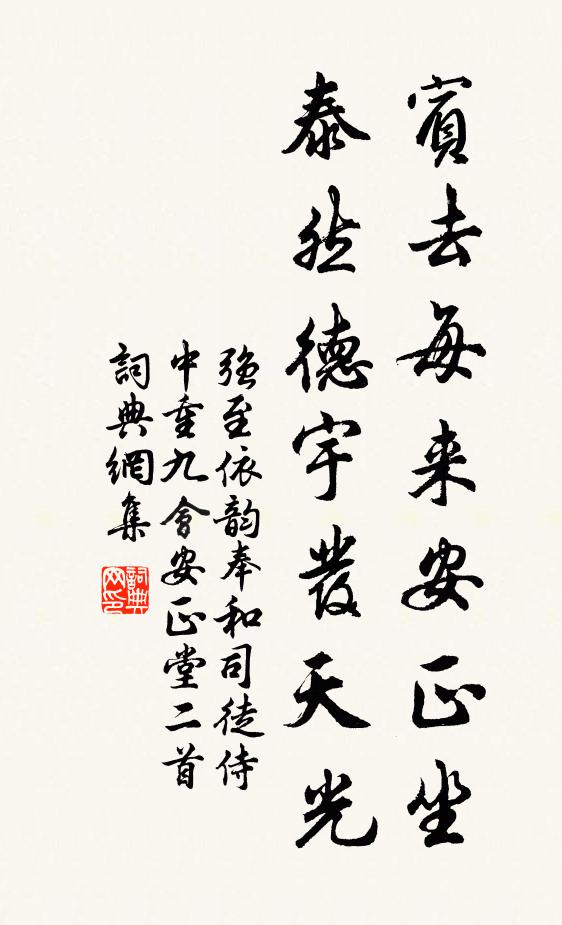 賓去每来安正坐
泰然德宇發天光
强至依韵奉和司徒侍
中重九會安正堂二首
詞典網集
詞典網印